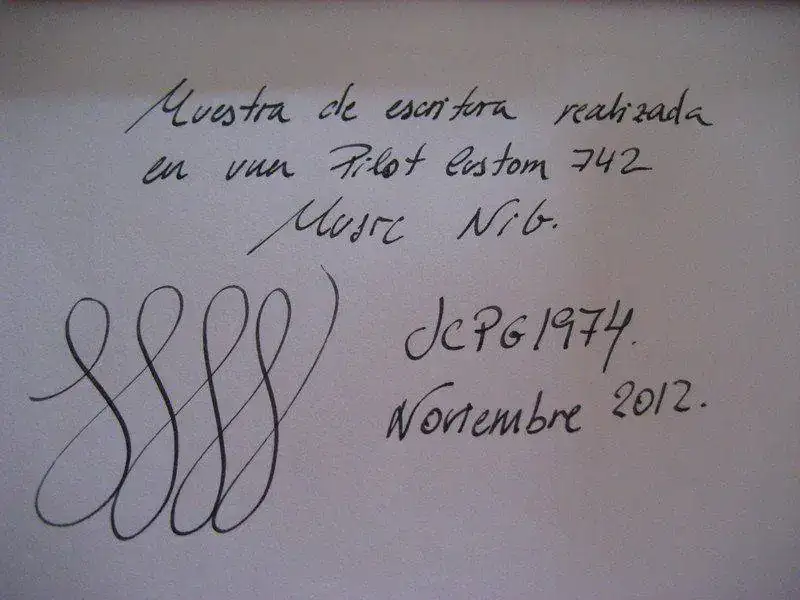 Muestra de escritura realizada
en una Pilot Custom 742
Music Nib.
JCPG1974.
Noviembre 2012.